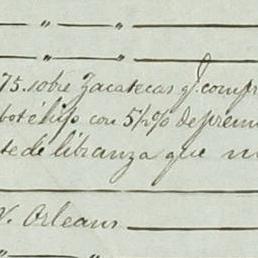 " "
" "
75. sobre Zacatecas q.e compr
bot é hijo con 5½% de premi
te de libranza que m
V. Orleans
" "